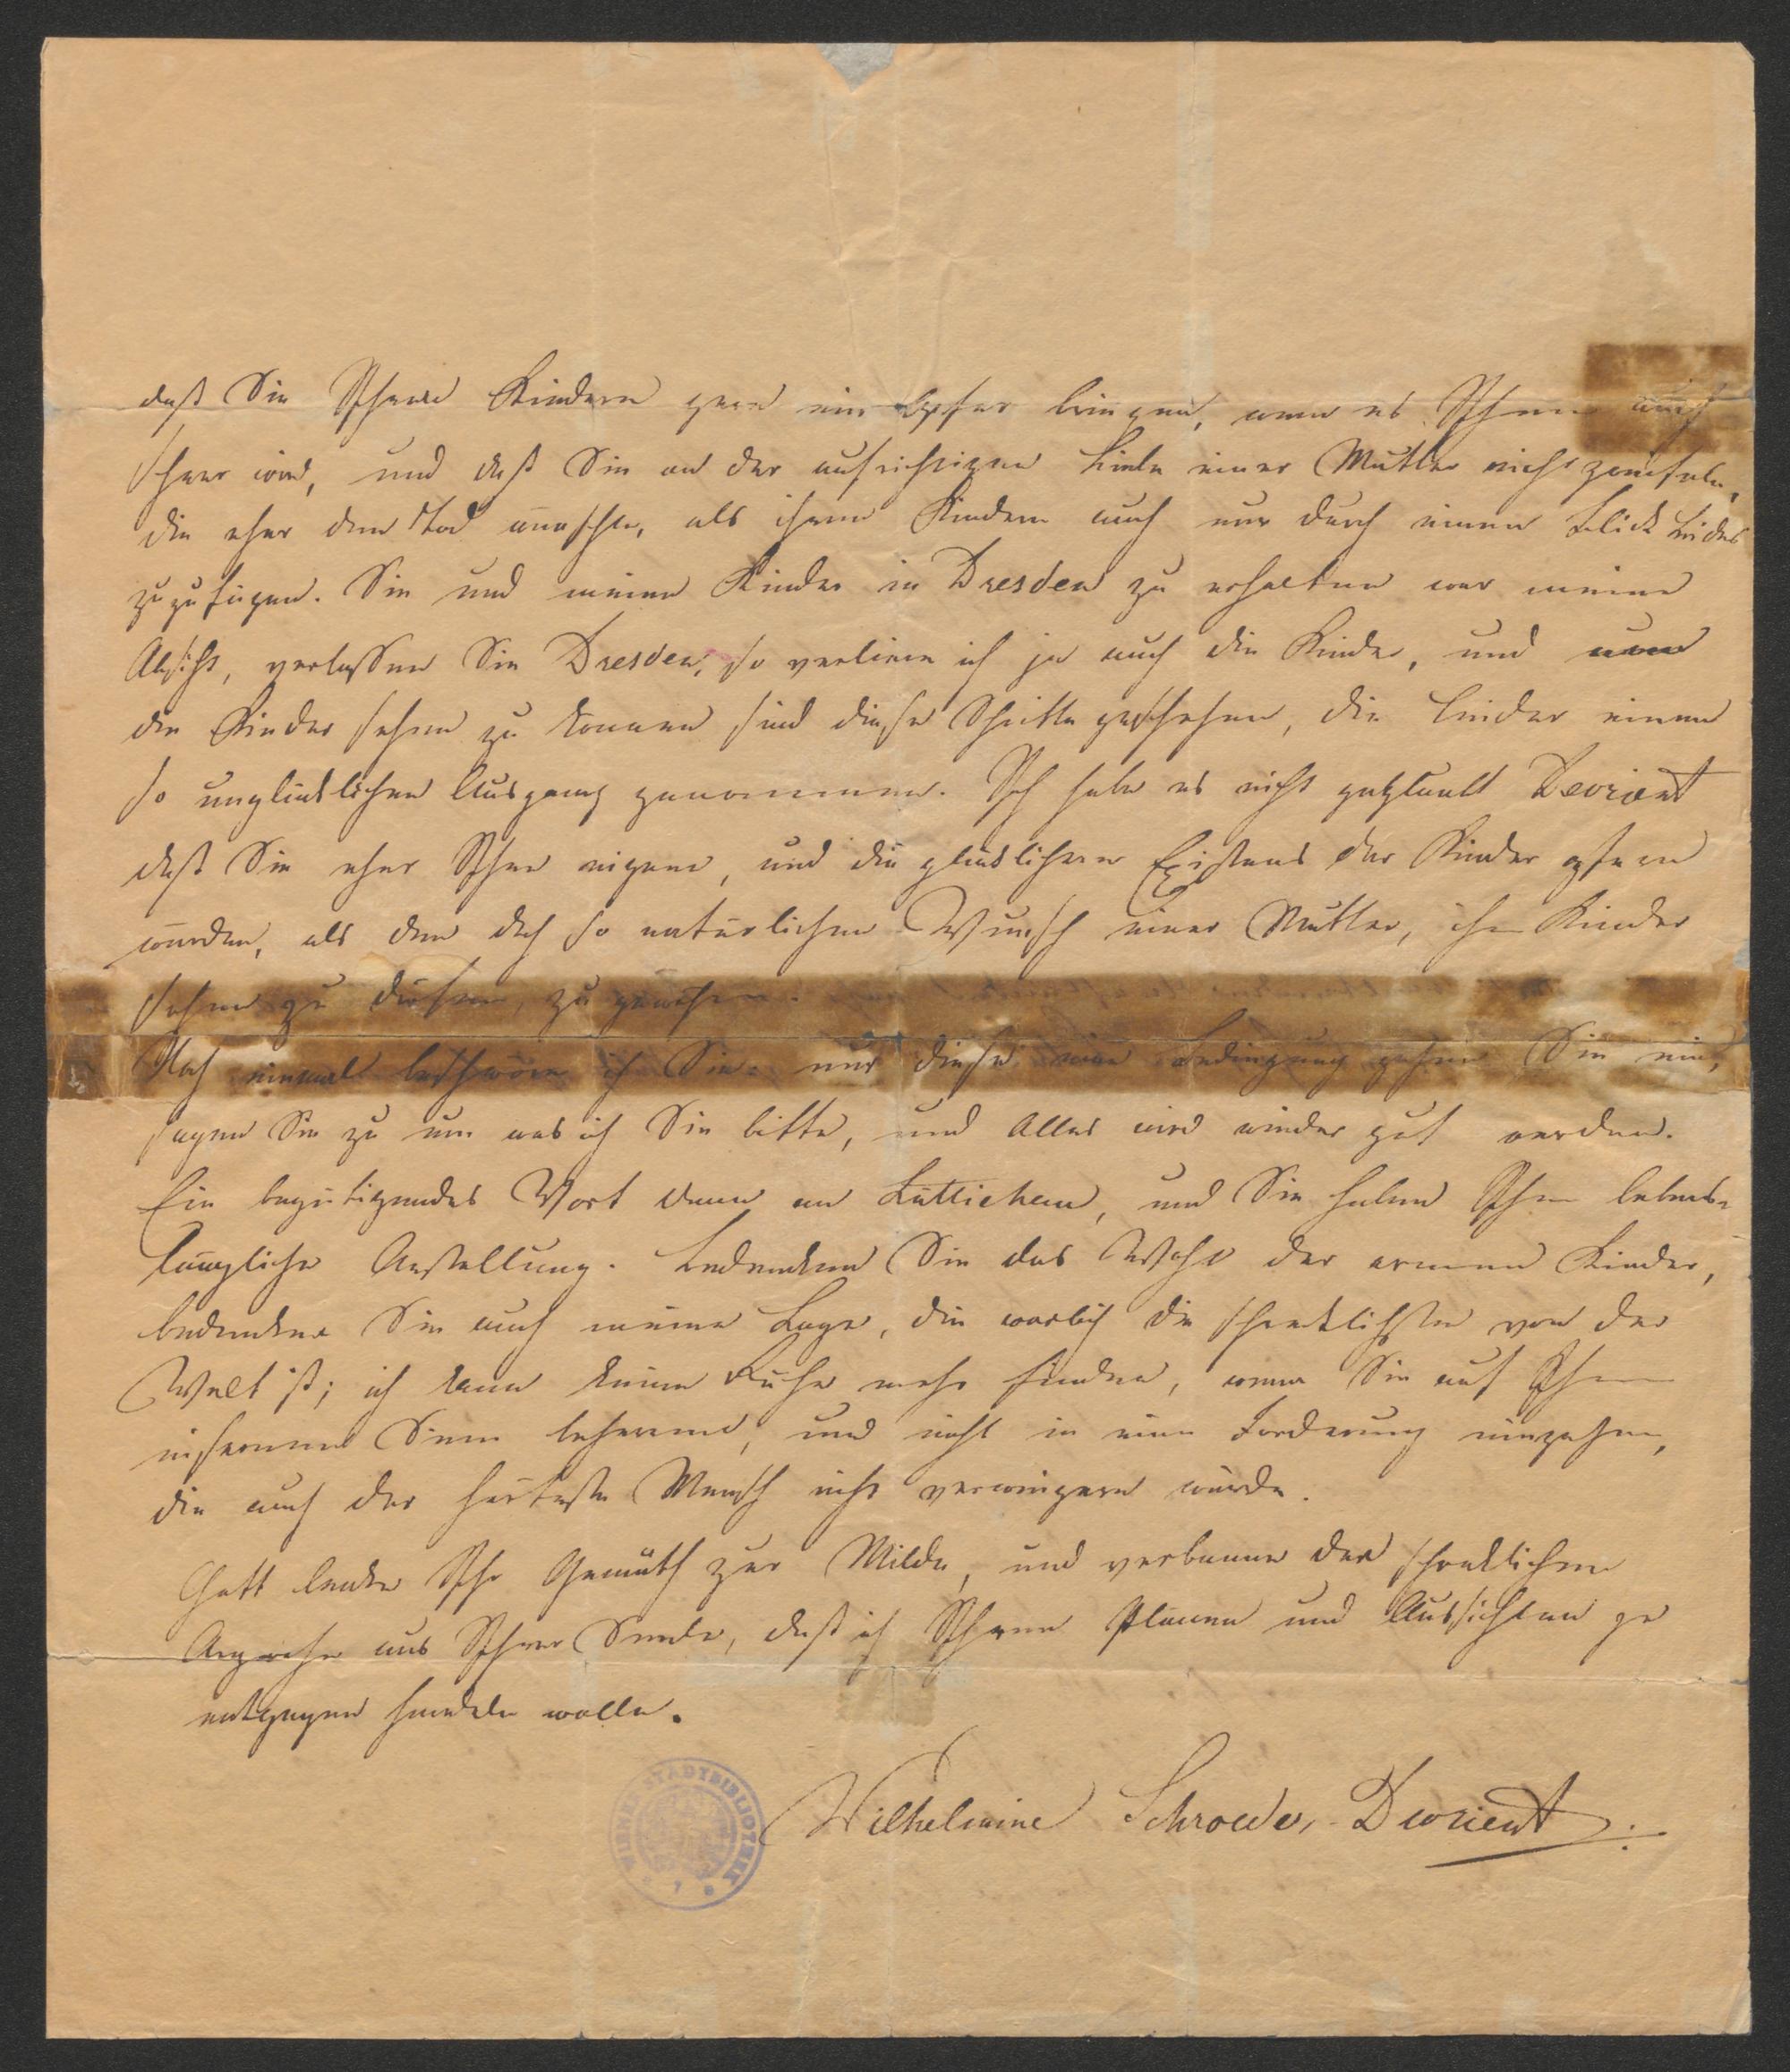 daß Sie Ihren Kindern gern ein Opfer bringen, wenn es Ihnen auch
schwer wird, und daß Sie an der aufrichtigen Liebe einer Mutter nicht zweifeln,
die eher den Tod wünschte, als ihren Kindern auch nur durch einen Blick Leides
zuzufügen. Sie und meine Kinder in Dresden zu erhalten war meine
Absicht, verlassen Sie Dresden, so verliere ich ja auch die Kinder, und
die Kinder sehen zu können sind diese Schritte geschehen, die leider einen
so unglücklichen Ausgang genommen. Ich habe es nicht geglaubt Devrient
daß Sie eher Ihre eigene, und die glücklichere Existens der Kinder opfern
würden, als den doch so natürlichen Wunsch einer Mutter, ihre Kinder
sehen zu dürfen, zu gewähren.
Noch einmal beschwöre ich Sie nur diese eine Bedingung gehen Sie ein,
sagen Sie zu um was ich Sie bitte, und Alles wird wieder gut werden.
Ein begütigendes Wort dann an Lüttichau, und Sie haben Ihre lebens-
längliche Anstellung. Bedenken Sie das Wohl der armen Kinder,
bedenken Sie auch meine Lage, die warlich die schrecklichste von der
Welt ist; ich kann keine Ruhe mehr finden, wenn Sie auf Ihrem
eisernen Sinn beharren, und nicht in eine Forderung eingehen,
die auch der härteste Mensch nicht verweigern würde.
Gott lenke Ihr Gemüth zur Milde, und verbanne den schrecklichen
Argwohn aus Ihrer Seele, daß ich Ihren Plänen und Aussichten
entgegen handeln wolle.
Wilhelmine Schroeder-Devrient
WIENER STADTBIBLIOTHEK